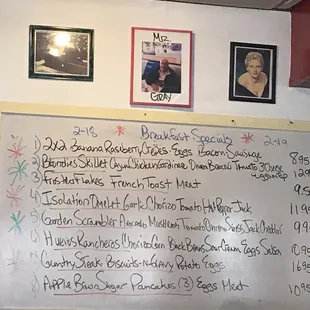 Miz
GRAY
2-18 Breakfast Specials 2-19
1) 2x2 Banana Raspberry Crepes Eggs Bacon Sausage 8.95
2) Blondies Skillet Chicken Onion Bacon Tomato 3 Cheese
3) Frosted Flakes French Toast Meat 9.5
4) Isolation Omelet Chorizo Tomato Pepper Jack 11.9
5) Garden Scrambler Avocado Mushroom Tomato Onion Swiss Jack Cheddar 9.9
6) Huevos Rancheros Chorizo Corn Black Beans Sour Cream Eggs Salsa 10.95
7) Country Steak Biscuits-N-Gravy Potato Eggs 16.95
8) Apple Brown Sugar Pancakes (3) Eggs Meat 10.95